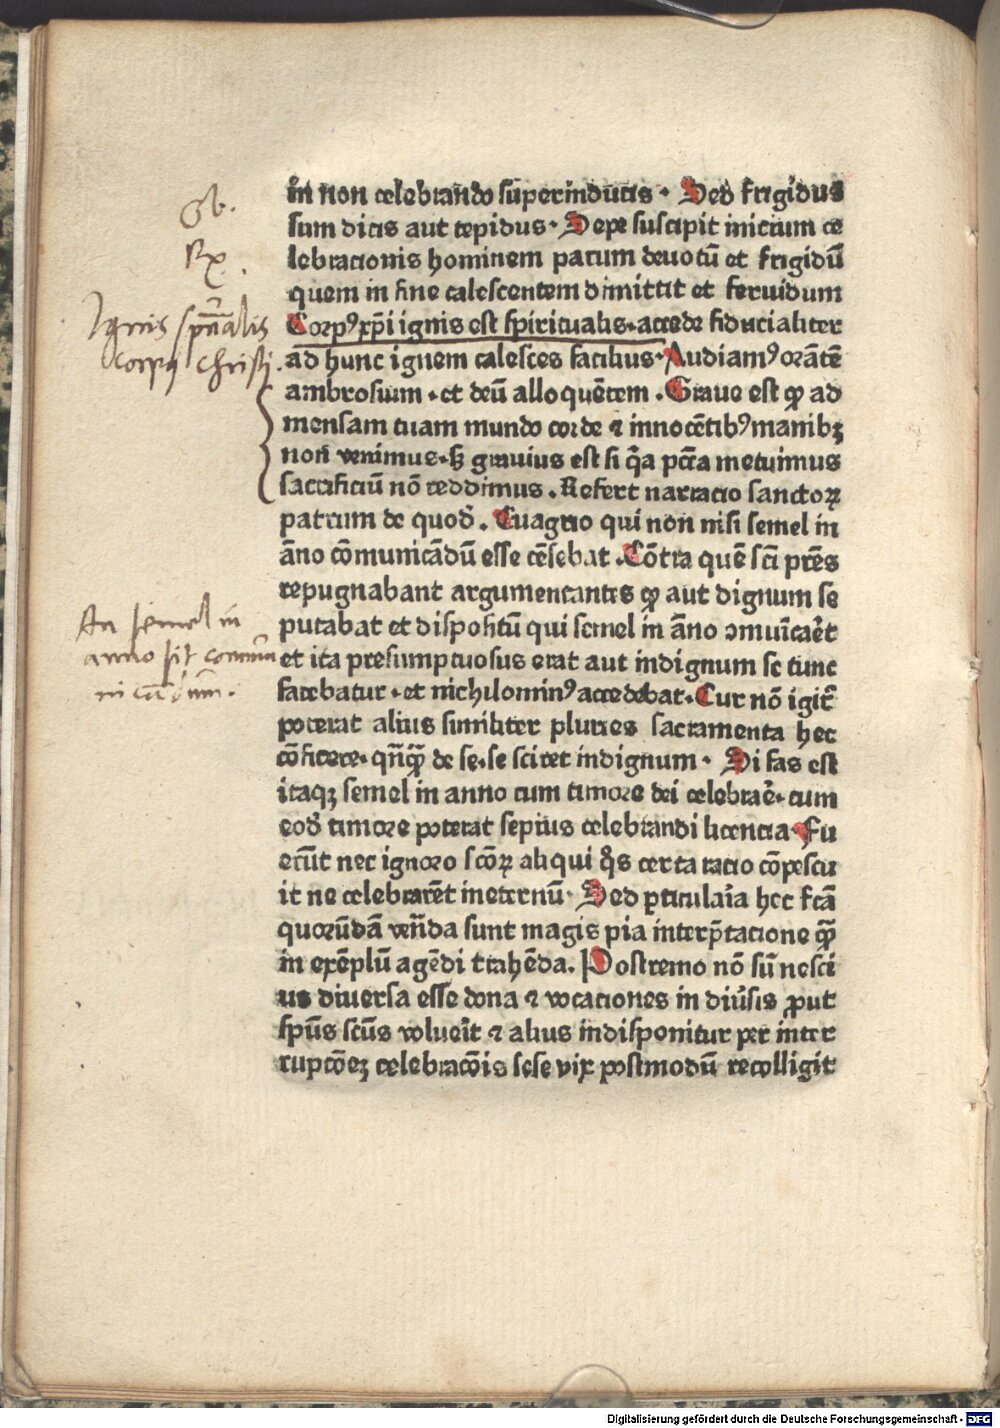 Ob.
Rx.
Ignis spūalis
corpꝯ christi.
An semel in
anno sit commu
nicādum.
īn non celebrando superinducis. Sed frigidus
sum dicis aut tepidus. Sepe suscipit inicium ce
lebracionis hominem parum deuotū et frigidū
quem in fine calescentem dimittit et feruidum
Corpꝯ xp̄i ignis est spiritualis. accede fiducialiter
ad hunc ignem calesces facilius. Audiamꝯ orātē
ambrosium. et deū alloquētem. Graue est ꝙ ad
mensam tuam mundo corde ⁊ innocētibꝯ manibꝫ
non venimus. sꝫ grauius est si q̄a pctā metuimus
sacrificiū nō reddimus. Refert narracio sanctoꝝ
patrum de quod̄. Euagrio qui non nisi semel in
āno cōmunicādū esse cēsebat. Cōtra quē scī prēs
repugnabant argumentantes ꝙ aut dignum se
putabat et dispositū qui semel in āno ꝯmuīcaēt
et ita presumptuosus erat aut indignum se tunc
fatebatur. et nichilominꝯ accedebat. Cur nō igiť
poterat alius similiter pluries sacramenta hec
cōficere. qn̄qꝫ de se. se sciret indignum. Si fas est
itaqꝫ semel in anno cum timore dei celebraē. cum
eod̄ timore poterat sepius celebrandi licencia. Fu
erūt nec ignoro scōꝝ aliqui q̊s certa racio cōpescu
it ne celebrarēt ineternū. Sed ꝑticulaīa hec fcā
quorūdā ven̄da sunt magis pia interp̄tacione qꝫ̄
in exēplū agēdi trahēda. Postremo nō sū nesci
us diuersa esse dona ⁊ vocaciones in diūsis ꝓut
spūs scūs volueīt ⁊ alius indisponitur per inter
rupcōeꝫ celebracōis sese vix postmodū recolligit
Digitalisierung gefördert durch die Deutsche Forschungsgemeinschaft - DFG